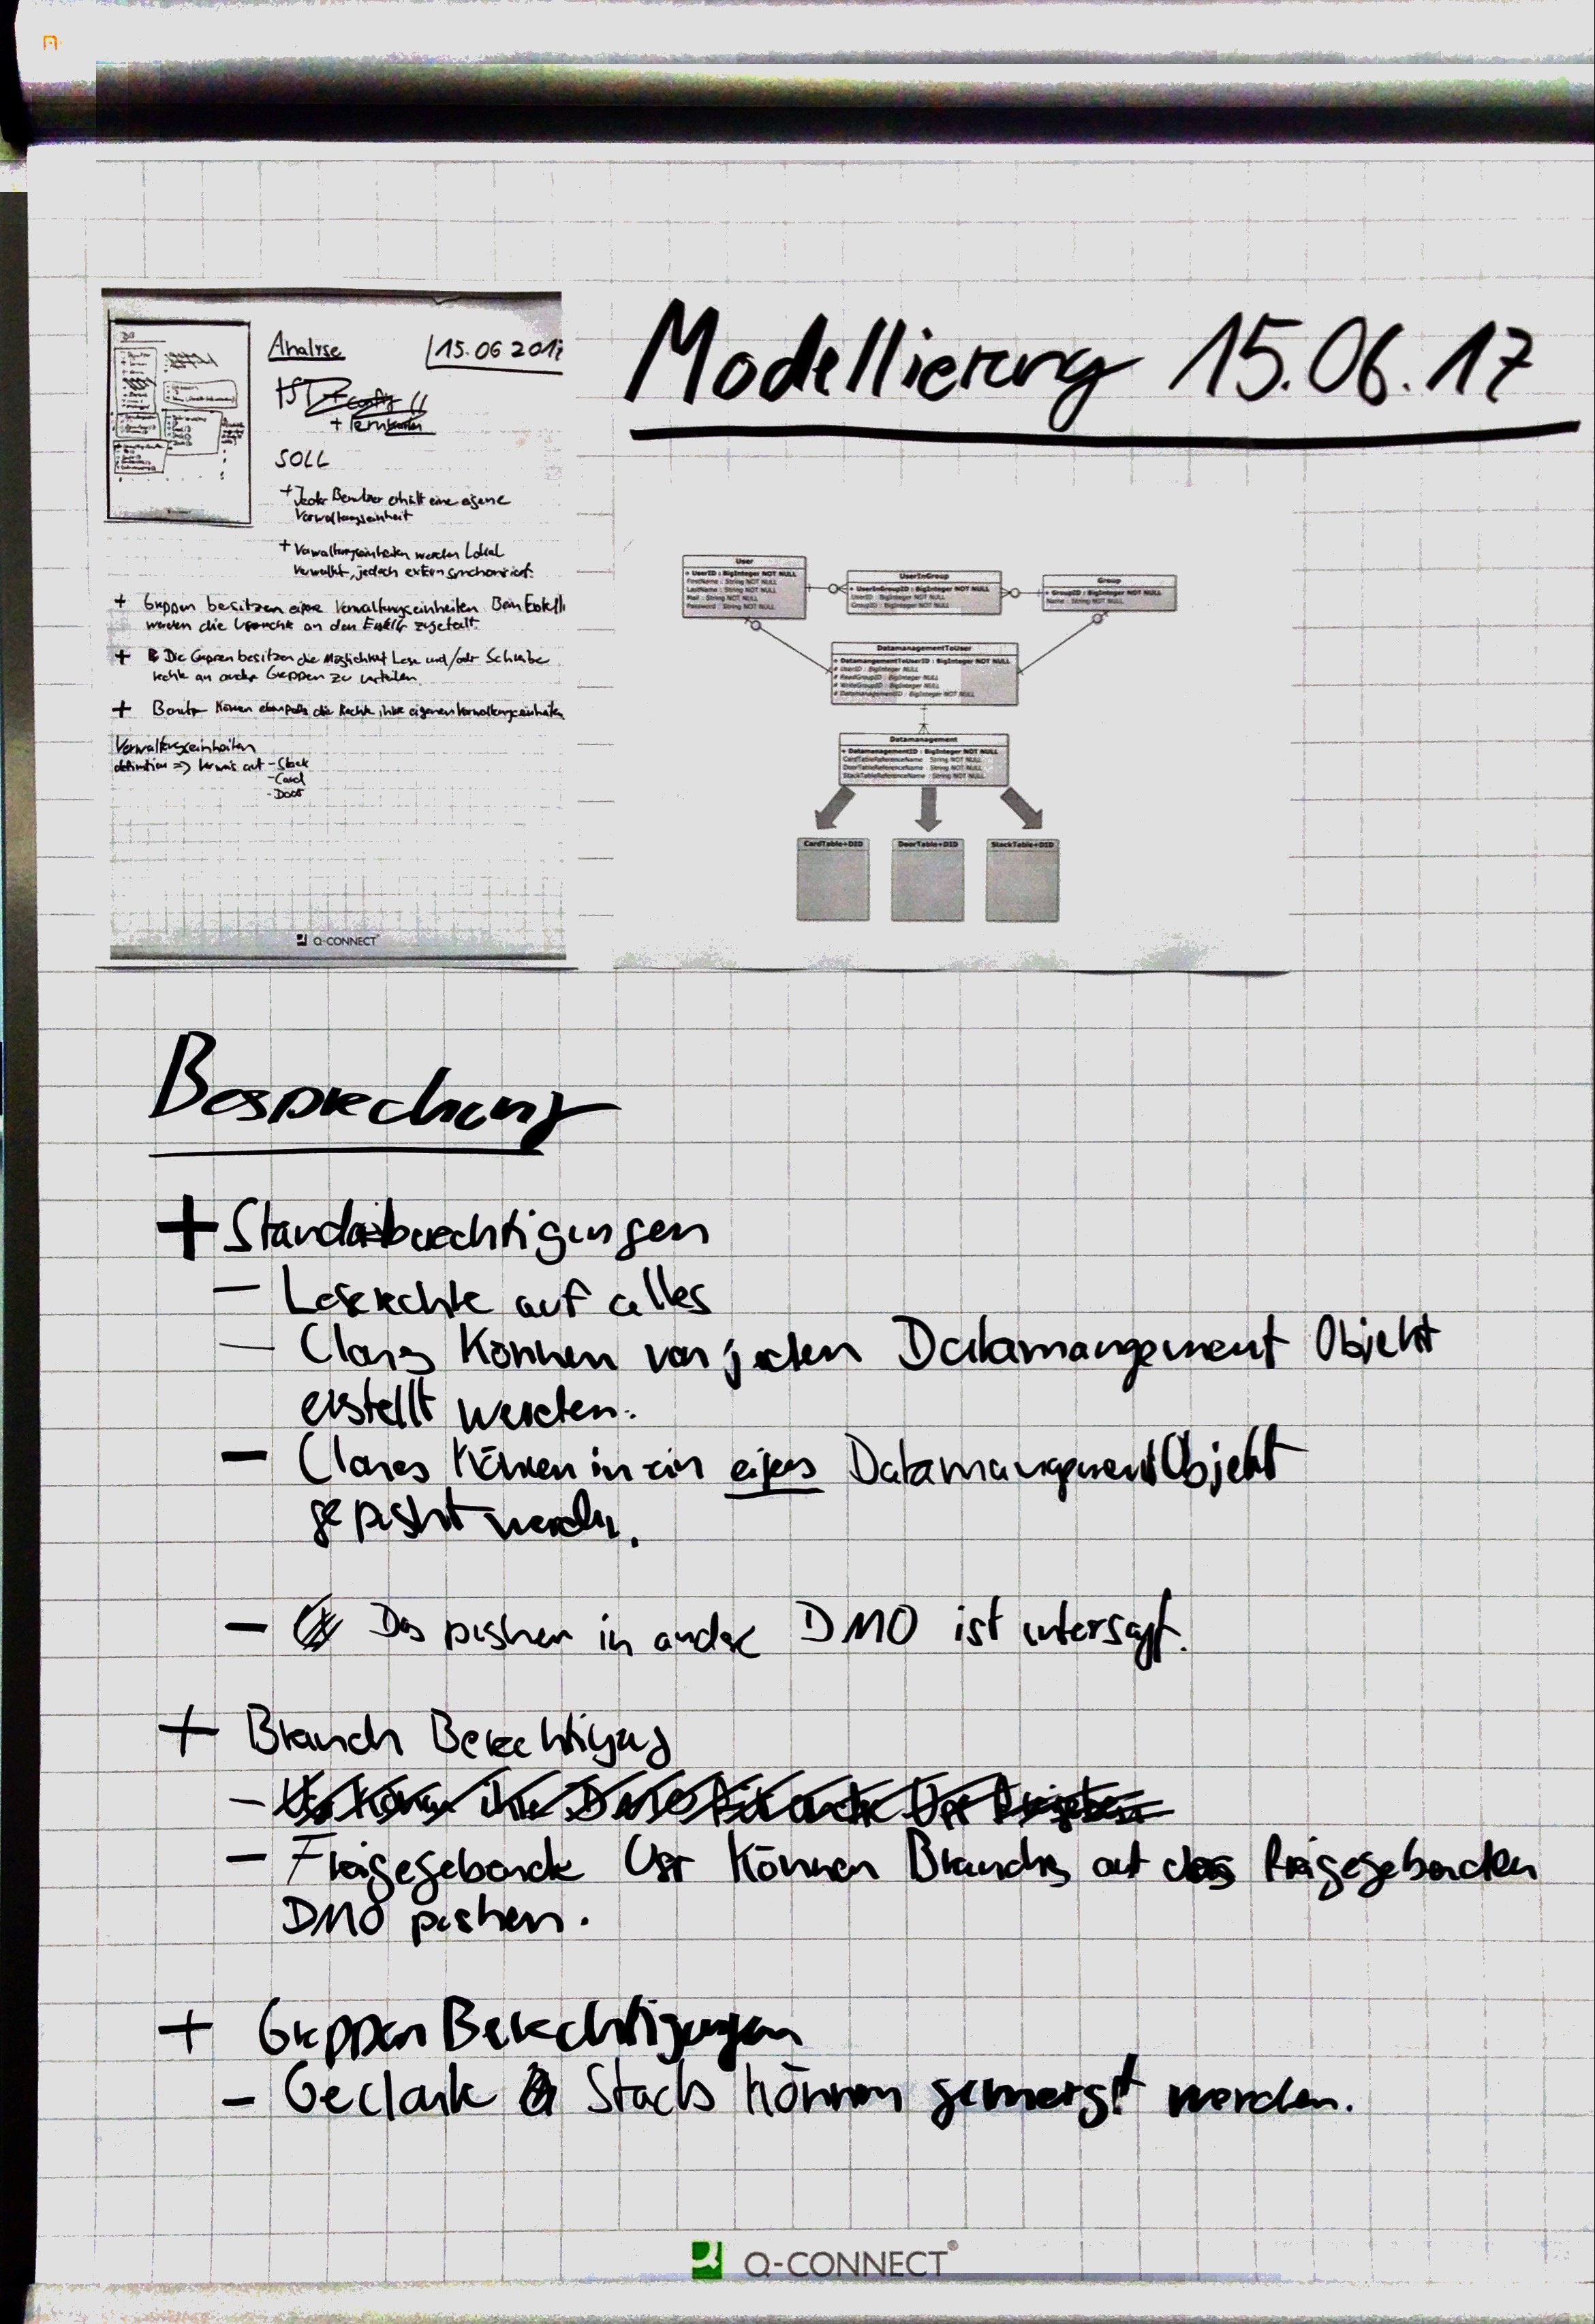 Analyse
15.06 201
SOLL
+ Jeder Benutzer erhält eine eigene
Verwaltungseinheit
+ Verwaltungseinheiten werden Lokal
verwaltet, jedoch extern synchronisiert.
+ Gruppen besitzen eigene Verwaltungseinheiten. Beim Erstell
werden die an den Ersteller zugeteilt.
+ Die Gruppen besitzen die Möglichkeit Lese und/oder Schreibe
rechte an andere Gruppen zu verteilen.
+ Benutzer können ebenfalls die Rechte ihrer eigenen Verwaltungseinheiten
Verwaltungseinheiten
definition => Verweis auf - Stack
- Card
- Door
Q-CONNECT
Modellierung 15.06.17
User
+ UserID : BigInteger NOT NULL
FirstName : String NOT NULL
LastName : String NOT NULL
Mail : String NOT NULL
Password : String NOT NULL
UserInGroup
+ UserInGroupID : BigInteger NOT NULL
UserID : BigInteger NOT NULL
GroupID : BigInteger NOT NULL
Group
+ GroupID : BigInteger NOT NULL
Name : String NOT NULL
DatamanagementToUser
+ DatamangementToUserID : BigInteger NOT NULL
# UserID : BigInteger NULL
# ReadGroupID : BigInteger NULL
# WriteGroupID : BigInteger NULL
# DatamanagementID : BigInteger NOT NULL
Datamanagement
+ DatamanagementID : BigInteger NOT NULL
CardTableReferenceName : String NOT NULL
DoorTableReferenceName : String NOT NULL
StackTableReferenceName : String NOT NULL
CardTable+DID
DoorTable+DID
StackTable+DID
Besprechung
+ Standardberechtigungen
- Leserechte auf alles
- Clones können von jeden Datamangement Objekt
erstellt werden.
- Clones können in ein eigenes Datamanagement Objekt
gepusht werden.
- Das pushen in andere DMO ist untersagt.
+ Branch Berechtigung
- Freigegebende User können Branches auf das freigegebenden
DMO pushen.
+ Gruppen Berechtigungen
- Geclonte Stacks können gemergt werden.
Q-CONNECT®